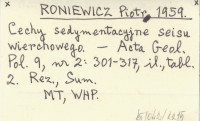 RONIEWICZ Piotr, 1959.
Cechy sedymentacyjne seisu
wierchowego. – Acta Geol.
Pol. 9, nr 2: 301-317, il., tabl.
2. Rez., Sum.
MT, WHP.